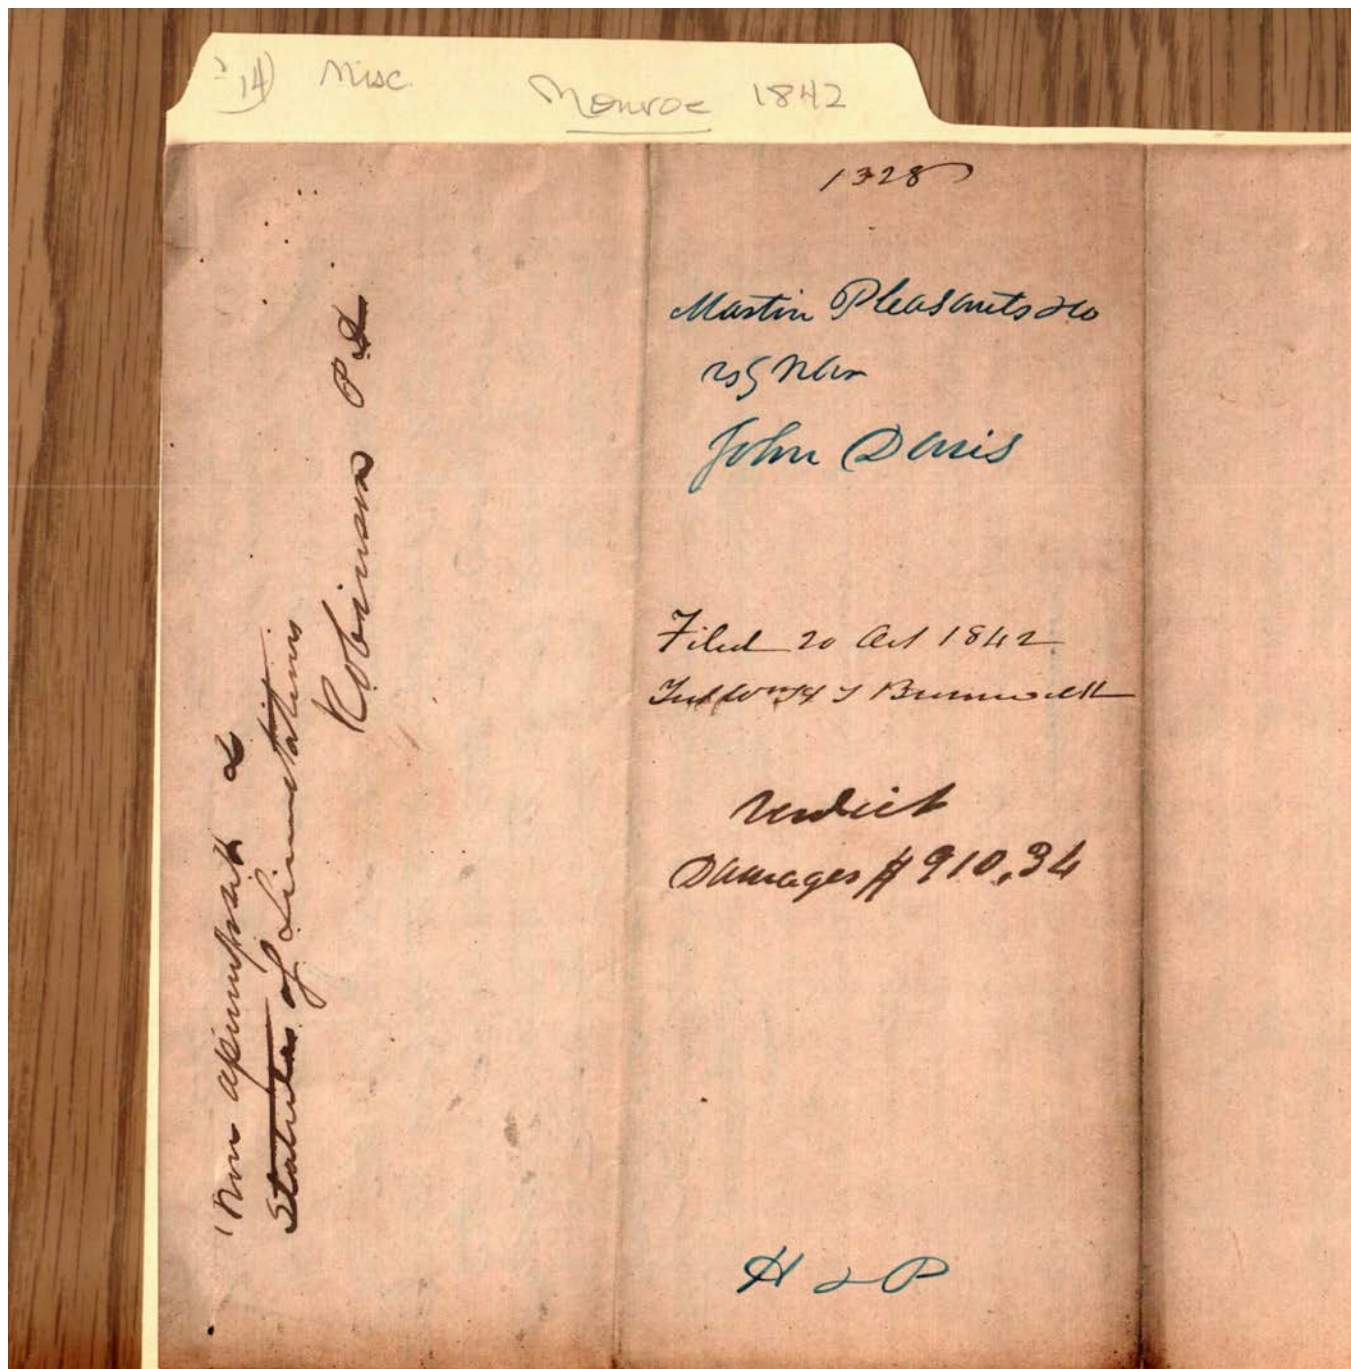 14) Misc. Monroe 1842
1328
Martin Pleasants & Co
vs Narr
John Davis
Filed 20 Oct 1842
Verdict
Damages $910,34
H & P
Non assumpsit &
Statute of Limitations
Robinson P. D